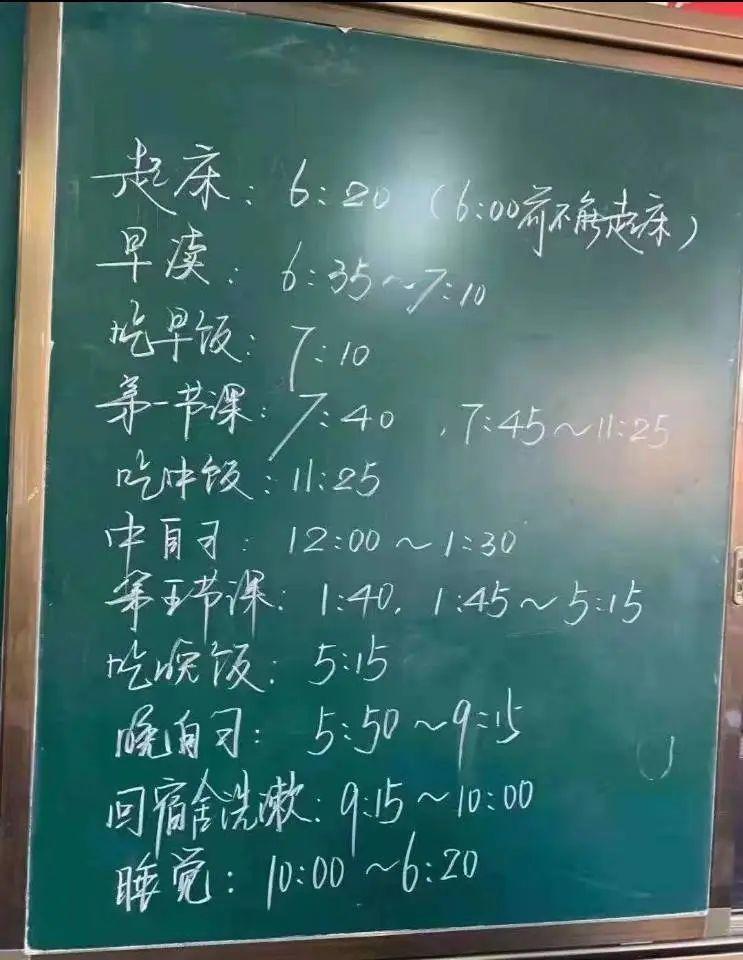 起床：6:20（6:00前不能起床）
早读：6:35～7:10
吃早饭：7:10
第一节课：7:40，7:45～11:25
吃中饭：11:25
中自习：12:00～1:30
第五节课：1:40，1:45～5:15
吃晚饭：5:15
晚自习：5:50～9:15
回宿舍洗漱：9:15～10:00
睡觉：10:00～6:20